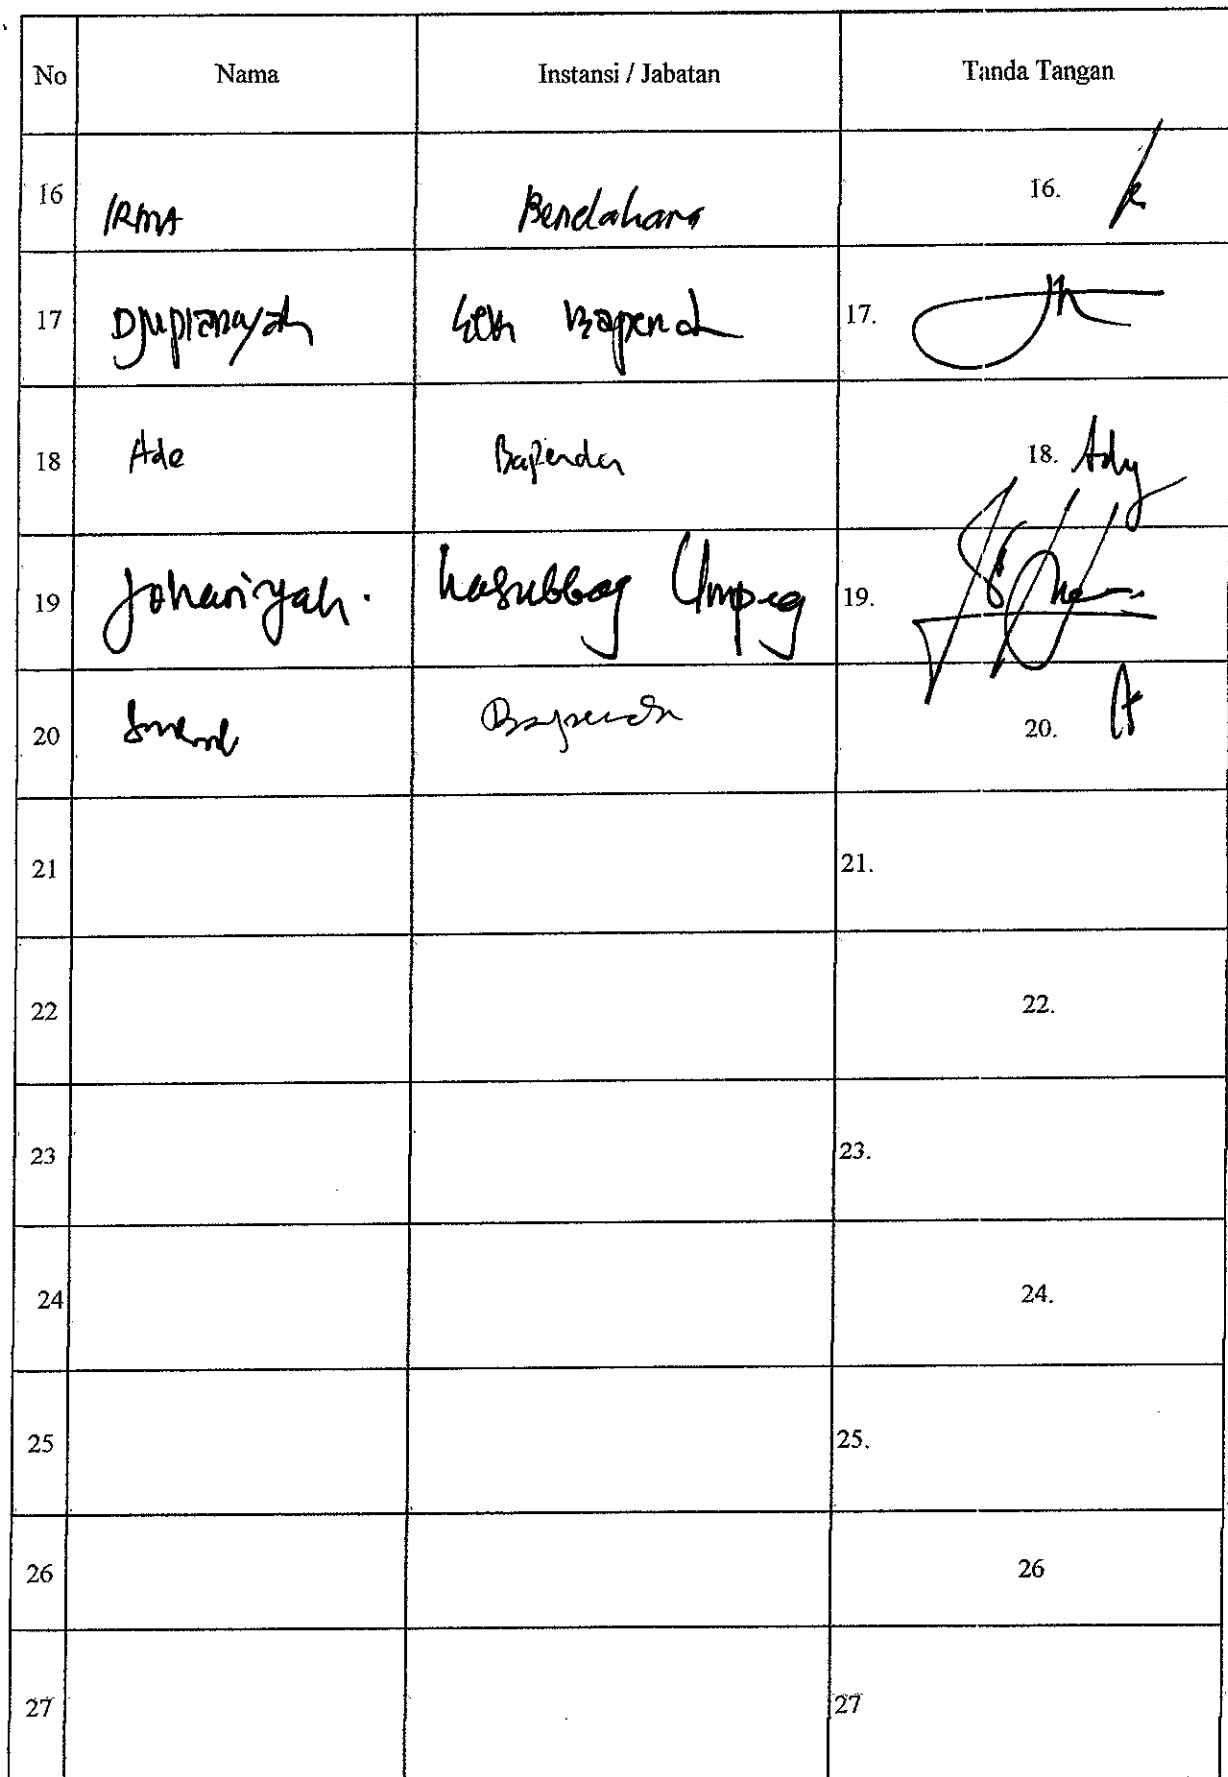 No Nama Instansi / Jabatan Tanda Tangan
16 IRMA Bendahara 16.
17 Djupiansyah Bapenda 17.
18 Ade Bapenda 18. Ady
19 Johariyah. Kasubbag Umpeg 19.
20 Bapenda 20.
21 21.
22 22.
23 23.
24 24.
25 25.
26 26
27 27